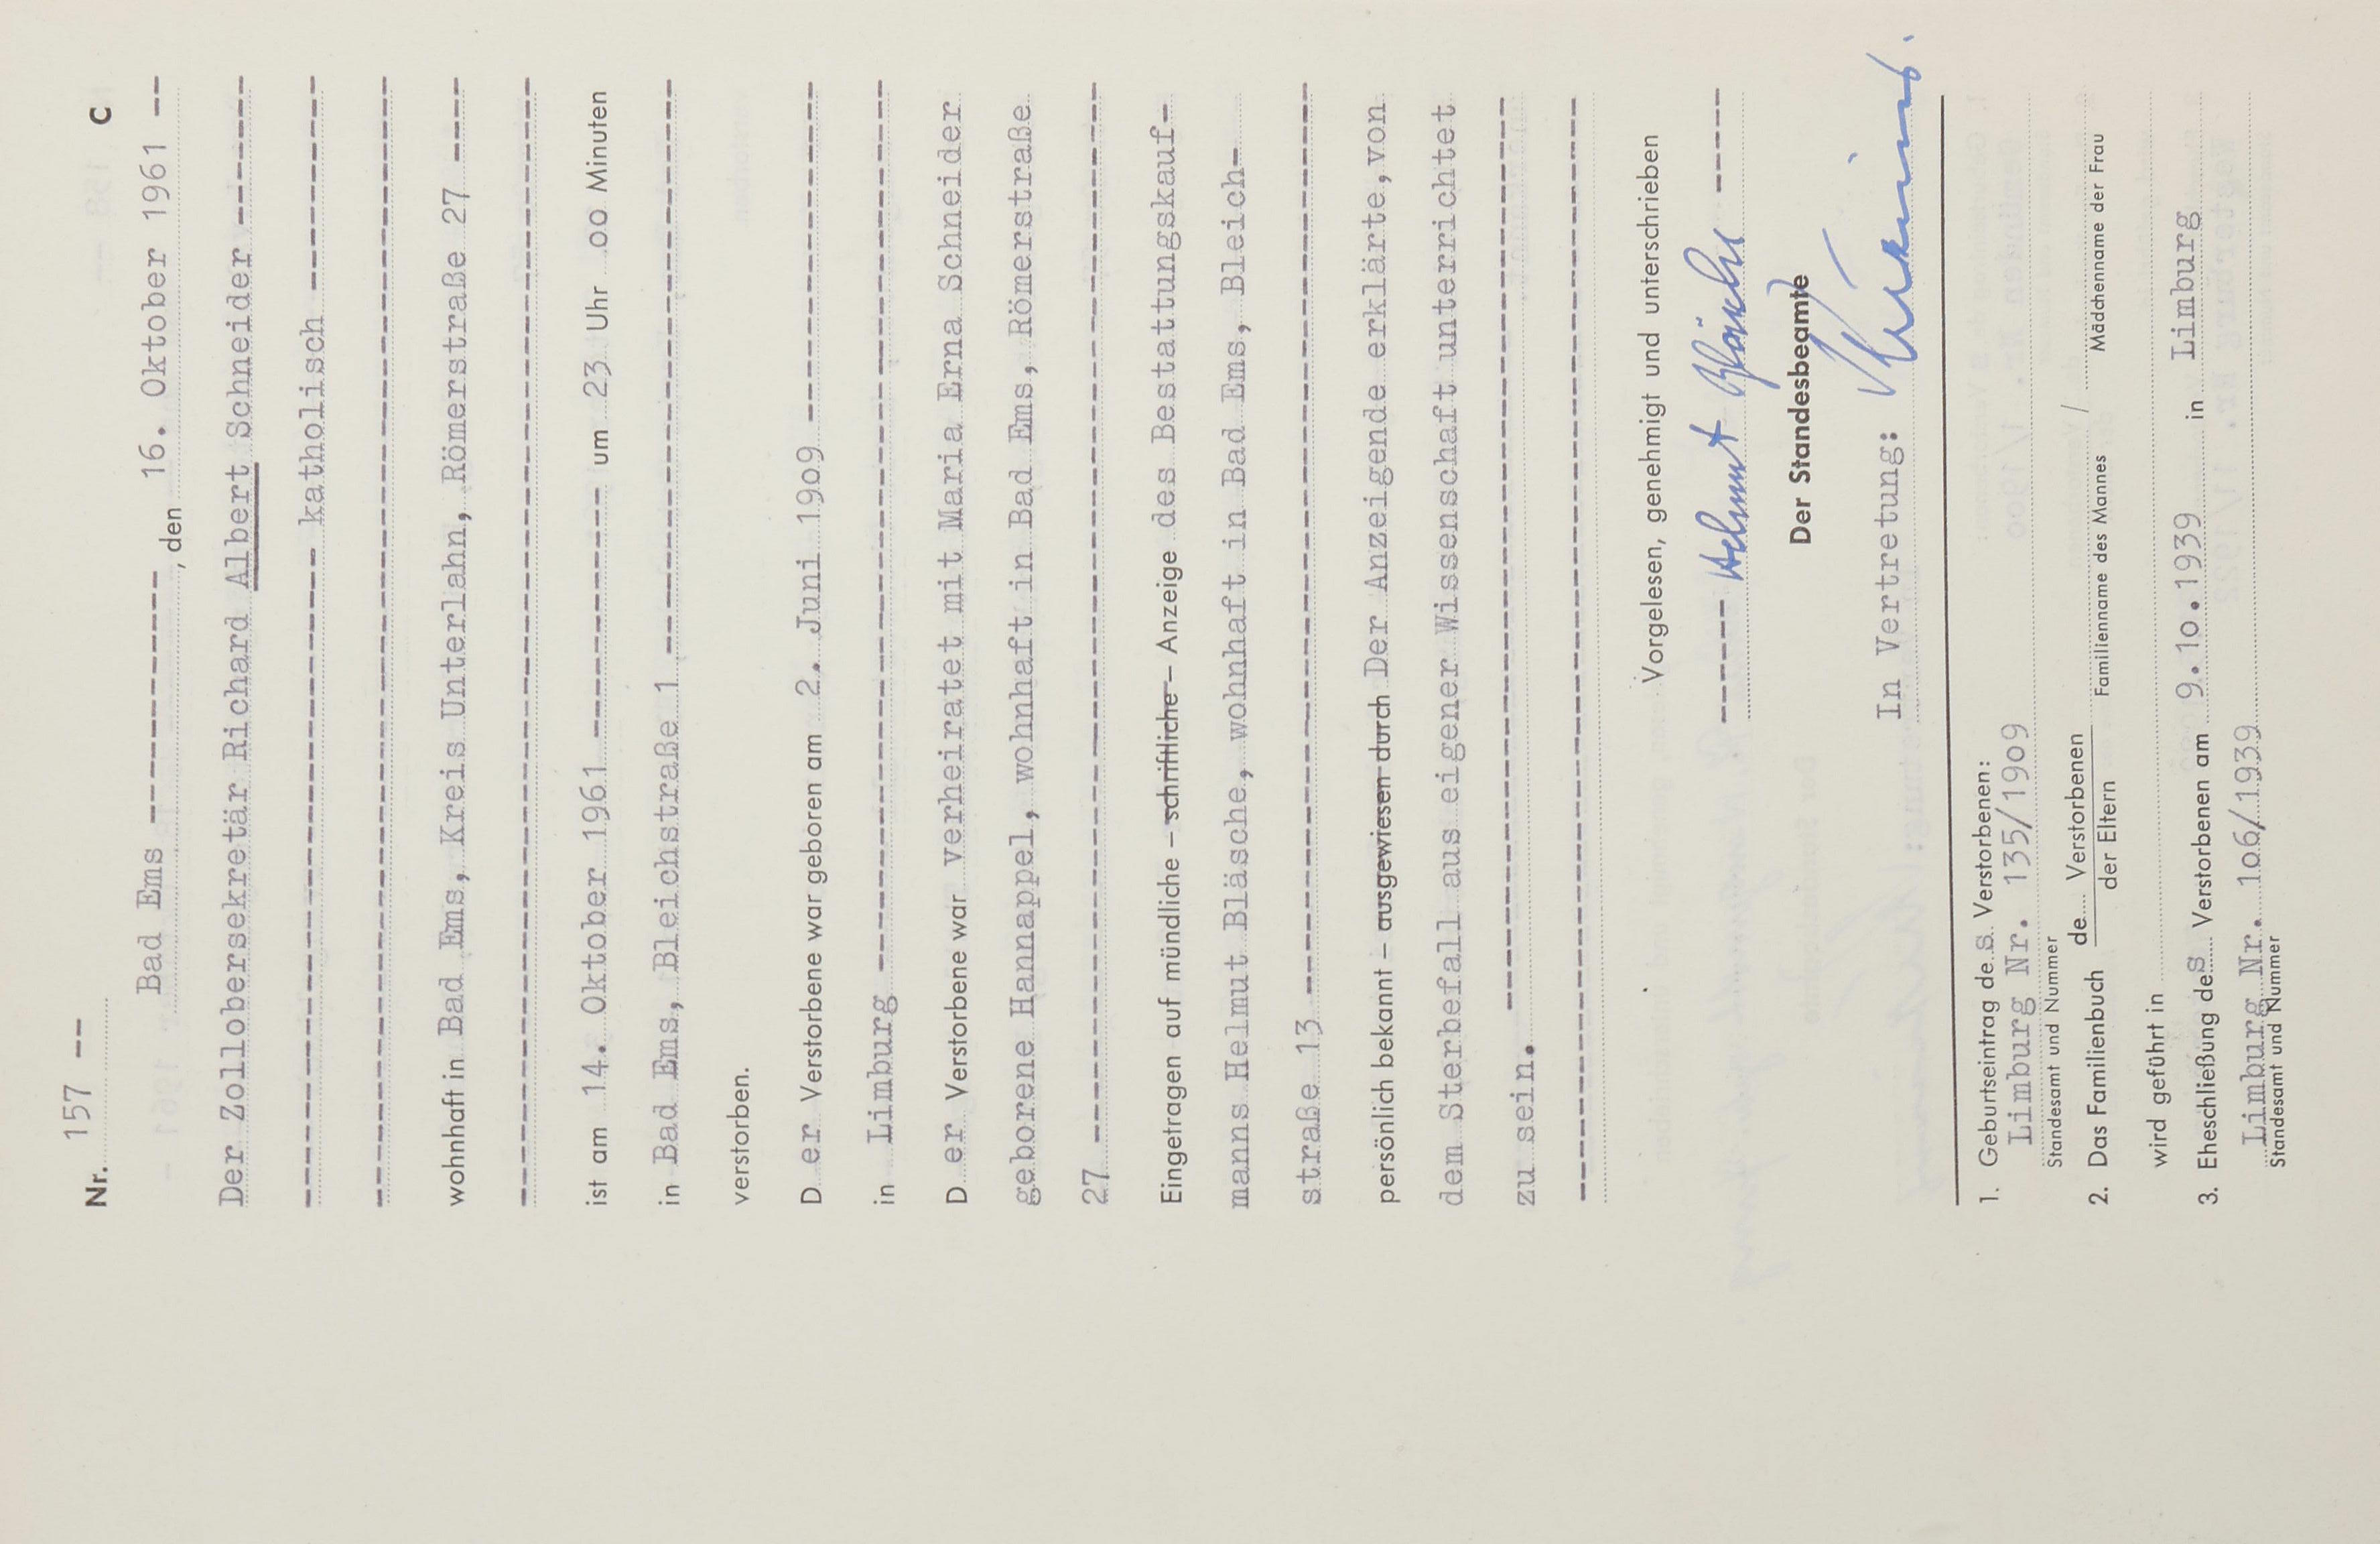 Nr. 157 -- C
Bad Ems --------------, den 16. Oktober 1961 --
Der Zollobersekretär Richard Albert Schneider ------
---------------------- katholisch ------------
wohnhaft in Bad Ems, Kreis Unterlahn, Römerstraße 27 ----
ist am 14. Oktober 1961 -------------- um 23 Uhr oo Minuten
in Bad Ems, Bleichstraße 1 --------------------------------
verstorben.
D er Verstorbene war geboren am 2. Juni 19o9 -------------------
in Limburg ----------------------------------------------
D er Verstorbene war verheiratet mit Maria Erna Schneider
geborene Hannappel, wohnhaft in Bad Ems, Römerstraße
27 ------------------------------------------------------
Eingetragen auf mündliche – schriftliche – Anzeige des Bestattungskauf-
manns Helmut Bläsche, wohnhaft in Bad Ems, Bleich-
straße 13 -----------------------------------------------
persönlich bekannt – ausgewiesen durch Der Anzeigende erklärte, von
dem Sterbefall aus eigener Wissenschaft unterrichtet
zu sein. --------------------------------------------------
Vorgelesen, genehmigt und unterschrieben
------ Helmut Bläsche ------
Der Standesbeamte
In Vertretung:
1. Geburtseintrag des Verstorbenen:
Limburg Nr. 135/19o9
Standesamt und Nummer
2. Das Familienbuch de.... Verstorbenen /
der Eltern Familienname des Mannes Mädchenname der Frau
wird geführt in
3. Eheschließung des Verstorbenen am 9.1o.1939 in Limburg
Limburg Nr. 1o6/1939
Standesamt und Nummer